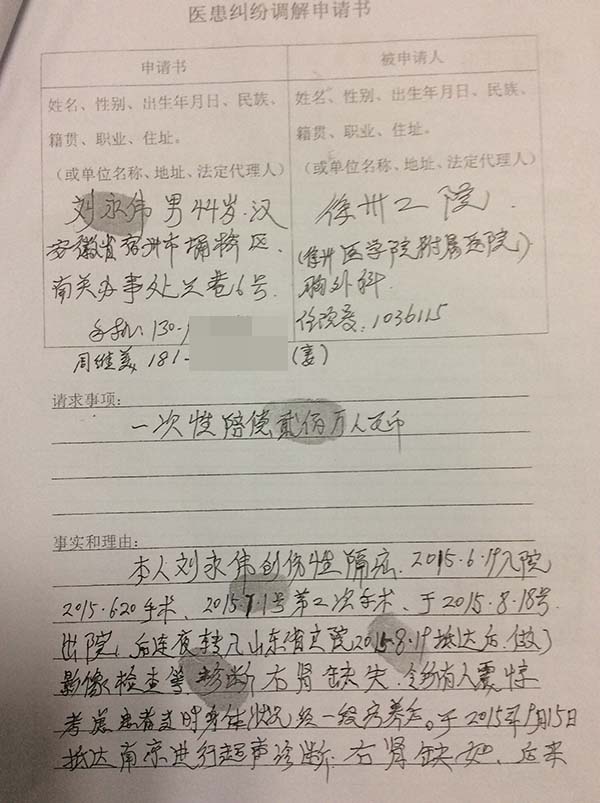 医患纠纷调解申请书
申请书
被申请人
姓名、性别、出生年月日、民族、
籍贯、职业、住址。
(或单位名称、地址、法定代理人)
姓名、性别、出生年月日、民族、
籍贯、职业、住址。
(或单位名称、地址、法定代理人)
刘永伟 男 44岁.汉
安徽省宿州市埇桥区.
南关办事处 巷6号
手机: 130-1
周维美 181-
徐州二院.
(徐州医学院附属医院)
胸外科.
住院号: 1036115
(妻)
请求事项:
一次性赔偿贰佰万人民币
事实和理由:
本人刘永伟创伤性膈疝. 2015.6.19入院
2015.6.20手术、2015.7.1号第2次手术、于2015.8.18号
出院, 后连夜转入山东省立院2015.8.19抵达后.做了
影像检查等诊断右肾缺失.令所有人震惊
考虑患者当时身体状况经一段 养后。于2015年9月15日
抵达南京进行超声诊断:右肾缺如. 后来